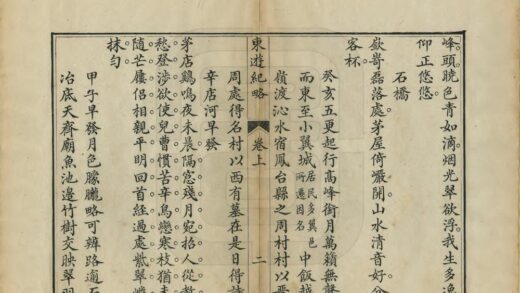 峰頭曉色青如滴烟光翠欲浮我生多逸
仰正悠悠
石橋
嶔嵜磊落處茅屋倚巖開山水清音好
客杯
癸亥五更起行高峰銜月萬籟無聲
而東至小翼城居民多翼邑所遷因名中飯越
嶺渡沁水宿鳳台縣之周村村以晉
東遊紀略 卷上 二
周處得名村以西有墓在是日得詩
辛店河早發
茅店鷄鳴夜未晨隔窻殘月宛招人從教
愁登涉欲使兒曹慣苦辛烏戀寒枝猶
隨芒屨侶相親平明回首經過處紫翠
抹勻
甲子早發月色朦朧略可辨路適石
冶底天齊廟魚池邊竹樹交映翠明